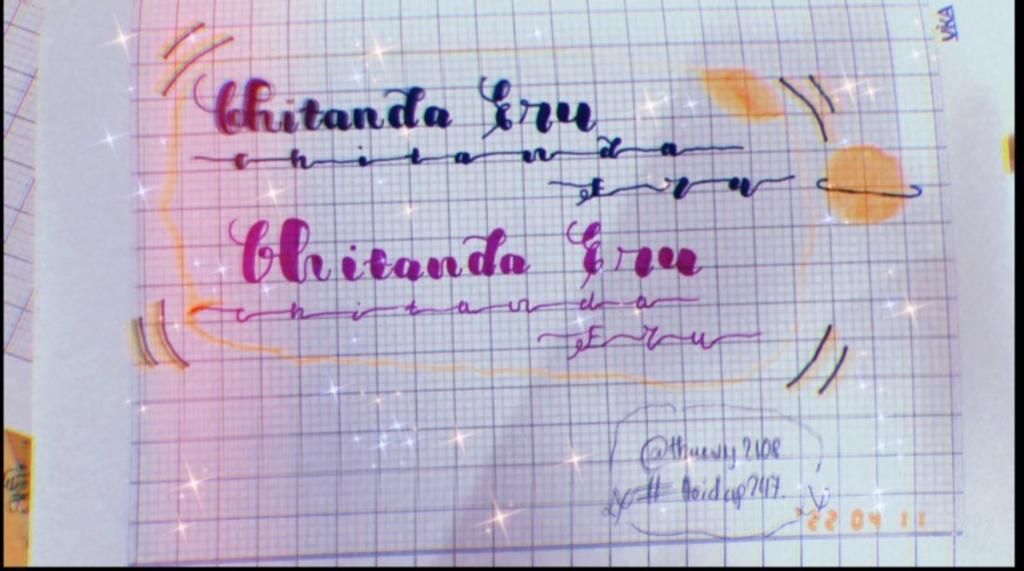 VKA
Chitanda Eru
chitanda
Eru
Chitanda Eru
chitanda
Eru
@thuevy2108
#hoidap247.
'22 04 11